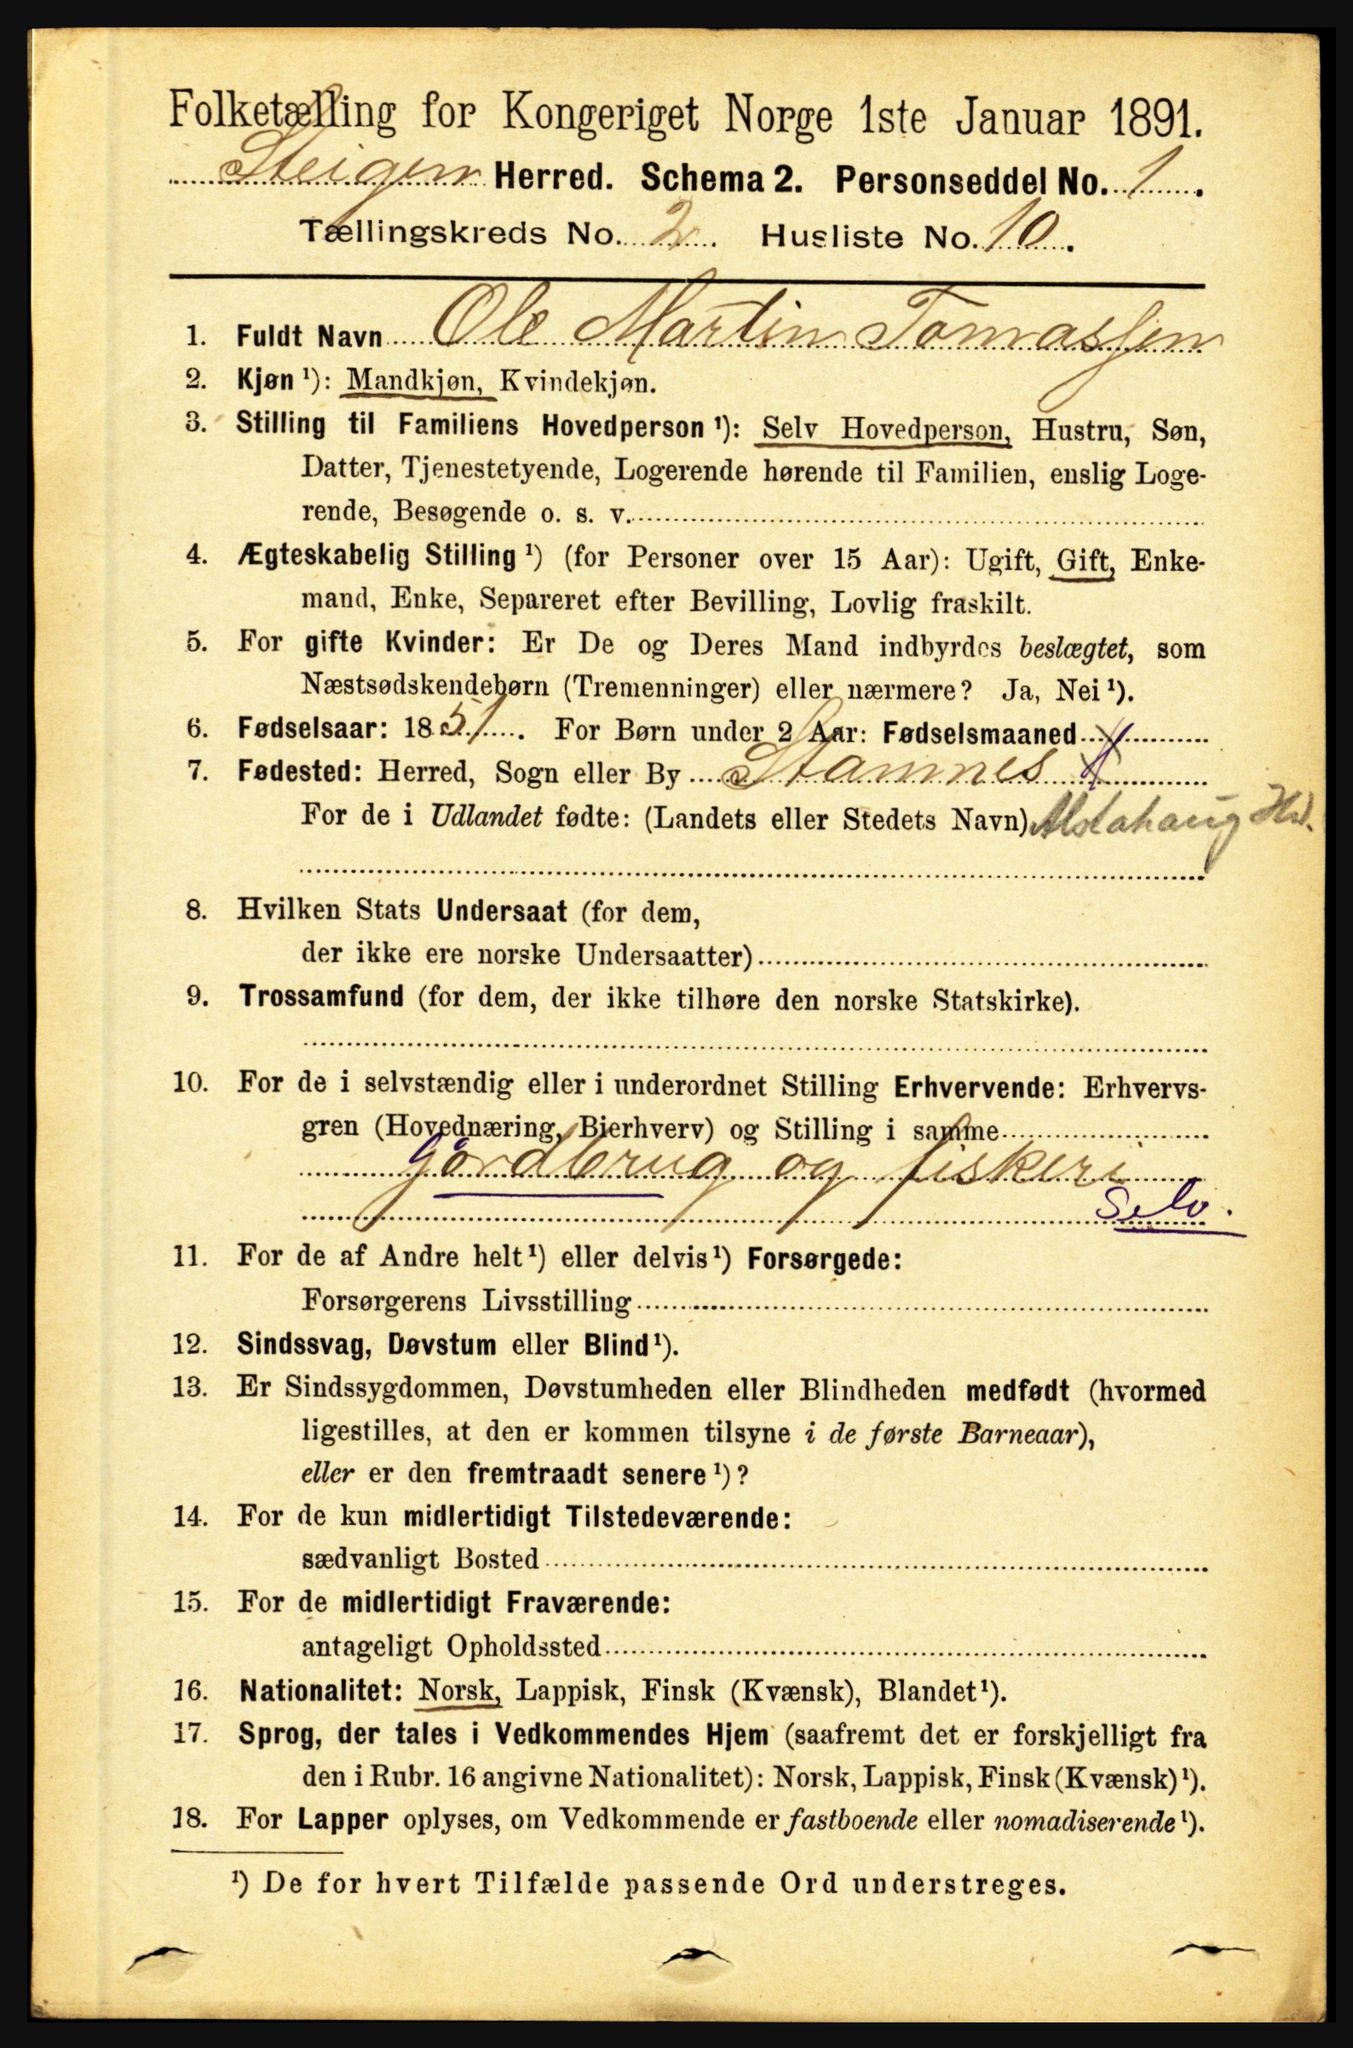 Folketælling for Kongeriget Norge 1ste Januar 1891.
Steigen Herred. Schema 2. Personseddel No. 1.
Tællingskreds No. 2. Husliste No. 10.
1. Fuldt Navn Ole Martin Tomassen
2. Kjøn ¹): Mandkjøn, Kvindekjøn.
3. Stilling til Familiens Hovedperson ¹): Selv Hovedperson, Hustru, Søn,
Datter, Tjenestetyende, Logerende hørende til Familien, enslig Loge-
rende, Besøgende o. s. v.
4. Ægteskabelig Stilling ¹) (for Personer over 15 Aar): Ugift, Gift, Enke-
mand, Enke, Separeret efter Bevilling, Lovlig fraskilt.
5. For gifte Kvinder: Er De og Deres Mand indbyrdes beslægtet, som
Næstsødskendebørn (Tremenninger) eller nærmere? Ja, Nei ¹).
6. Fødselsaar: 1851. For Børn under 2 Aar: Fødselsmaaned
7. Fødested: Herred, Sogn eller By Stamnes
For de i Udlandet fødte: (Landets eller Stedets Navn) Alstahaug Hd.
8. Hvilken Stats Undersaat (for dem,
der ikke ere norske Undersaatter)
9. Trossamfund (for dem, der ikke tilhøre den norske Statskirke).
10. For de i selvstændig eller i underordnet Stilling Erhvervende: Erhvervs-
gren (Hovednæring, Bierhverv) og Stilling i samme
Gårdbrug og fiskeri
Selv.
11. For de af Andre helt ¹) eller delvis ¹) Forsørgede:
Forsørgerens Livsstilling
12. Sindssvag, Døvstum eller Blind ¹).
13. Er Sindssygdommen, Døvstumheden eller Blindheden medfødt (hvormed
ligestilles, at den er kommen tilsyne i de første Barneaar),
eller er den fremtraadt senere ¹)?
14. For de kun midlertidigt Tilstedeværende:
sædvanligt Bosted
15. For de midlertidigt Fraværende:
antageligt Opholdssted
16. Nationalitet: Norsk, Lappisk, Finsk (Kvænsk), Blandet ¹).
17. Sprog, der tales i Vedkommendes Hjem (saafremt det er forskjelligt fra
den i Rubr. 16 angivne Nationalitet): Norsk, Lappisk, Finsk (Kvænsk) ¹).
18. For Lapper oplyses, om Vedkommende er fastboende eller nomadiserende ¹).
¹) De for hvert Tilfælde passende Ord understreges.